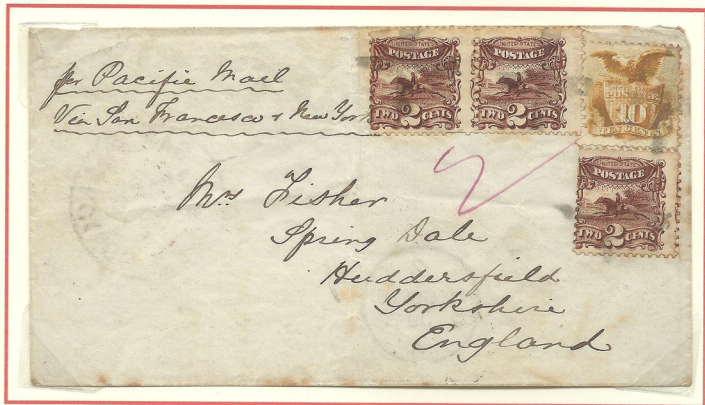 per Pacific Mail
Via San Francisco & New York
UNITED STATES
POSTAGE
TWO 2 CENTS
UNITED STATES
POSTAGE
TWO 2 CENTS
10
TEN CENTS
UNITED STATES
POSTAGE
TWO 2 CENTS
Mrs Fisher
Spring Dale
Huddersfield
Yorkshire
England